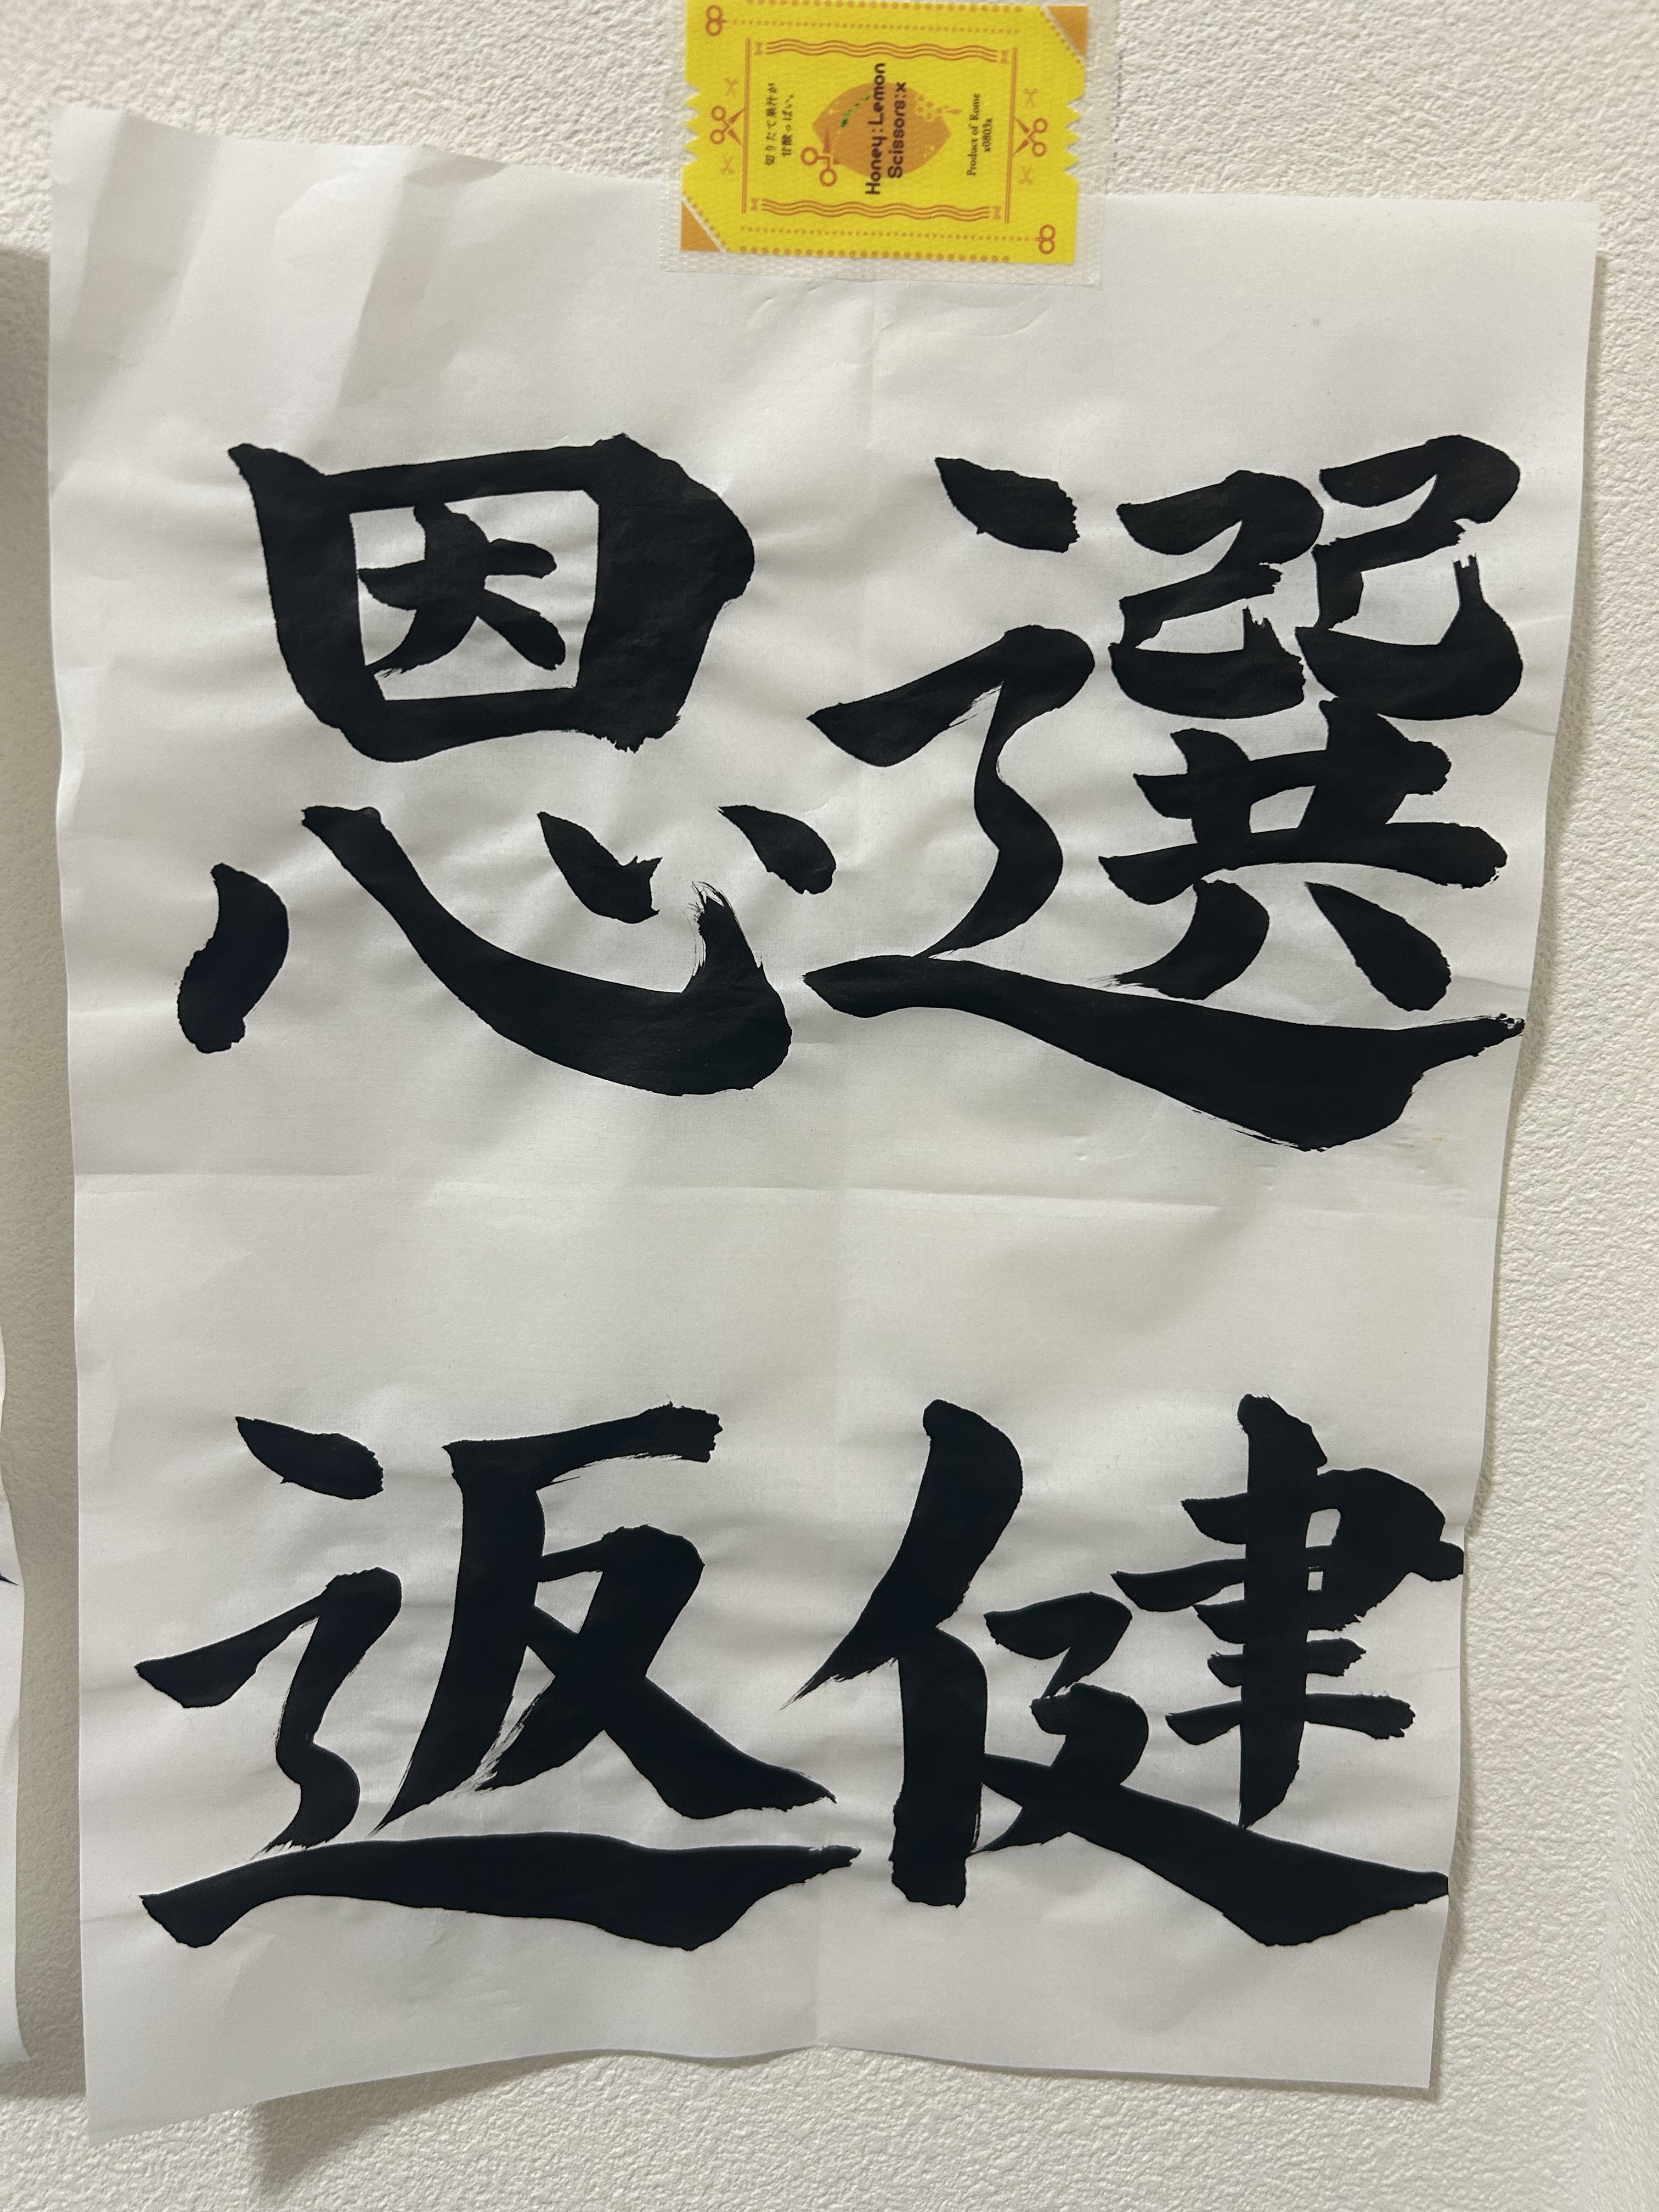 切りたて果汁が
甘酸っぱい。
Honey:Lemon
Scissors:x
Product of Rome
x0803x
選健
恩返